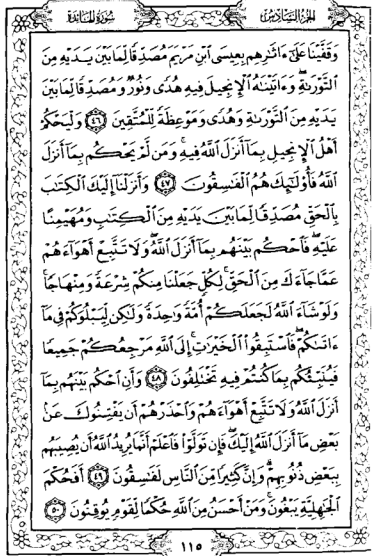 الجزء السادس
سورة المائدة
وَقَفَّيْنَا عَلَىٰٓ ءَاثَٰرِهِم بِعِيسَى ٱبْنِ مَرْيَمَ مُصَدِّقًا لِّمَا بَيْنَ يَدَيْهِ مِنَ
ٱلتَّوْرَىٰةِ وَءَاتَيْنَٰهُ ٱلْإِنجِيلَ فِيهِ هُدًى وَنُورٌ وَمُصَدِّقًا لِّمَا بَيْنَ
يَدَيْهِ مِنَ ٱلتَّوْرَىٰةِ وَهُدًى وَمَوْعِظَةً لِّلْمُتَّقِينَ ٤٦ وَلْيَحْكُمْ
أَهْلُ ٱلْإِنجِيلِ بِمَآ أَنزَلَ ٱللَّهُ فِيهِ وَمَن لَّمْ يَحْكُم بِمَآ أَنزَلَ
ٱللَّهُ فَأُو۟لَٰٓئِكَ هُمُ ٱلْفَٰسِقُونَ ٤٧ وَأَنزَلْنَآ إِلَيْكَ ٱلْكِتَٰبَ
بِٱلْحَقِّ مُصَدِّقًا لِّمَا بَيْنَ يَدَيْهِ مِنَ ٱلْكِتَٰبِ وَمُهَيْمِنًا
عَلَيْهِ فَٱحْكُم بَيْنَهُم بِمَآ أَنزَلَ ٱللَّهُ وَلَا تَتَّبِعْ أَهْوَآءَهُمْ
عَمَّا جَآءَكَ مِنَ ٱلْحَقِّ لِكُلٍّ جَعَلْنَا مِنكُمْ شِرْعَةً وَمِنْهَاجًا
وَلَوْ شَآءَ ٱللَّهُ لَجَعَلَكُمْ أُمَّةً وَٰحِدَةً وَلَٰكِن لِّيَبْلُوَكُمْ فِى مَآ
ءَاتَىٰكُمْ فَٱسْتَبِقُوا۟ ٱلْخَيْرَٰتِ إِلَى ٱللَّهِ مَرْجِعُكُمْ جَمِيعًا
فَيُنَبِّئُكُم بِمَا كُنتُمْ فِيهِ تَخْتَلِفُونَ ٤٨ وَأَنِ ٱحْكُم بَيْنَهُم بِمَآ
أَنزَلَ ٱللَّهُ وَلَا تَتَّبِعْ أَهْوَآءَهُمْ وَٱحْذَرْهُمْ أَن يَفْتِنُوكَ عَنۢ
بَعْضِ مَآ أَنزَلَ ٱللَّهُ إِلَيْكَ فَإِن تَوَلَّوْا۟ فَٱعْلَمْ أَنَّمَا يُرِيدُ ٱللَّهُ أَن يُصِيبَهُم
بِبَعْضِ ذُنُوبِهِمْ وَإِنَّ كَثِيرًا مِّنَ ٱلنَّاسِ لَفَٰسِقُونَ ٤٩ أَفَحُكْمَ
ٱلْجَٰهِلِيَّةِ يَبْغُونَ وَمَنْ أَحْسَنُ مِنَ ٱللَّهِ حُكْمًا لِّقَوْمٍ يُوقِنُونَ ٥٠
١١٥